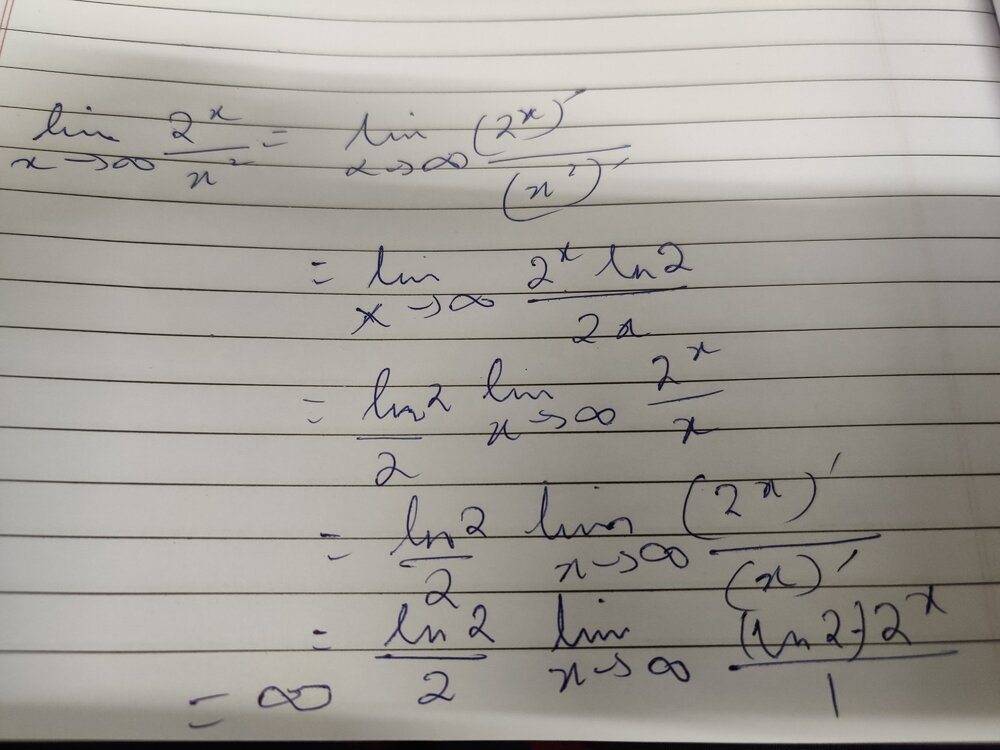 lim x→∞ 2^x / x^2 = lim x→∞ (2^x)' / (x^2)'
= lim x→∞ 2^x ln 2 / 2x
= ln 2 / 2 lim x→∞ 2^x / x
= ln 2 / 2 lim x→∞ (2^x)' / (x)'
= ln 2 / 2 lim x→∞ (ln 2) 2^x / 1
= ∞